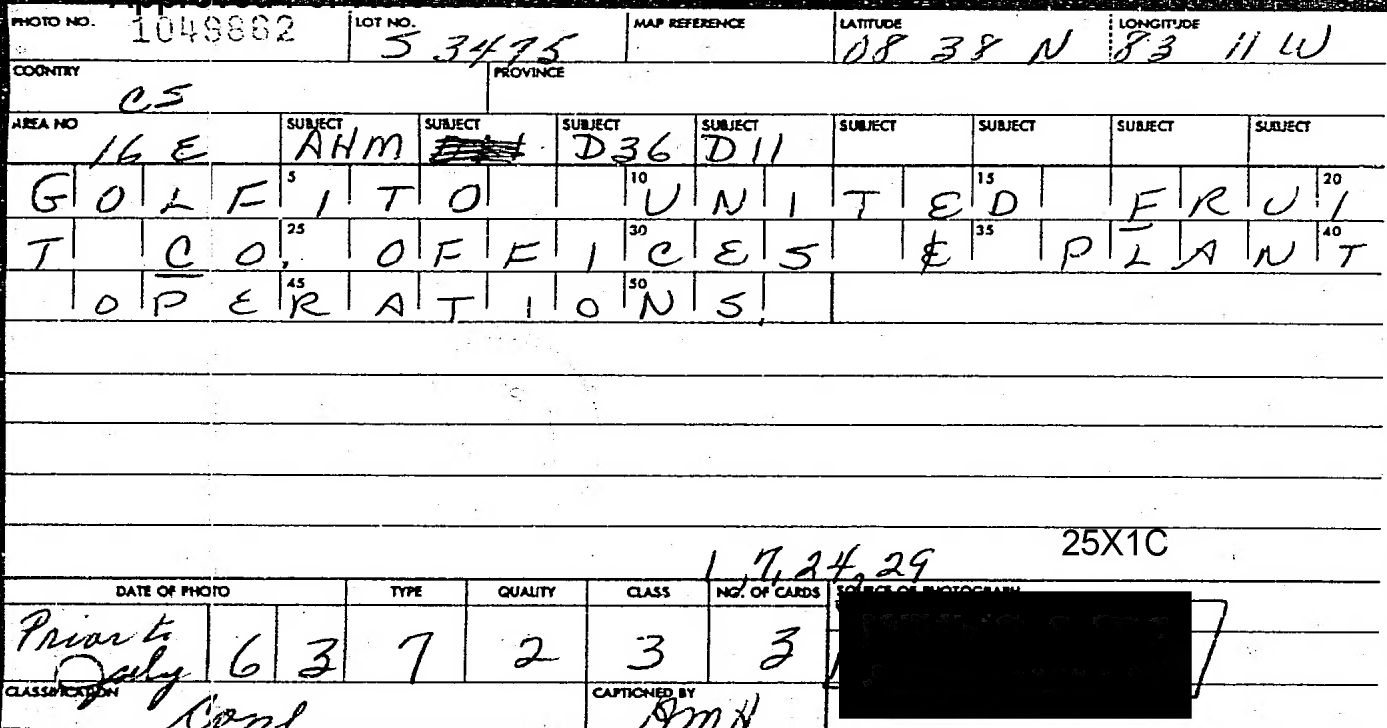 PHOTO NO. 1049882 LOT NO. S 3475 MAP REFERENCE LATITUDE 08 38 N LONGITUDE 83 11 W
COUNTRY CS PROVINCE
AREA NO 16 E SUBJECT AHM SUBJECT SUBJECT D36 SUBJECT D11 SUBJECT SUBJECT SUBJECT SUBJECT
GOLFITO 5 10 UNITED 15 FRUI 20
T CO. 25 OFFICES 30 & 35 PLANT 40
OPERATIONS. 45 50
25X1C
1, 7, 24, 29
DATE OF PHOTO TYPE QUALITY CLASS NO. OF CARDS SOURCE OF PHOTOGRAPH
Prior to 6 3 7 2 3 3
CLASSIFICATION Conf CAPTIONED BY AMH